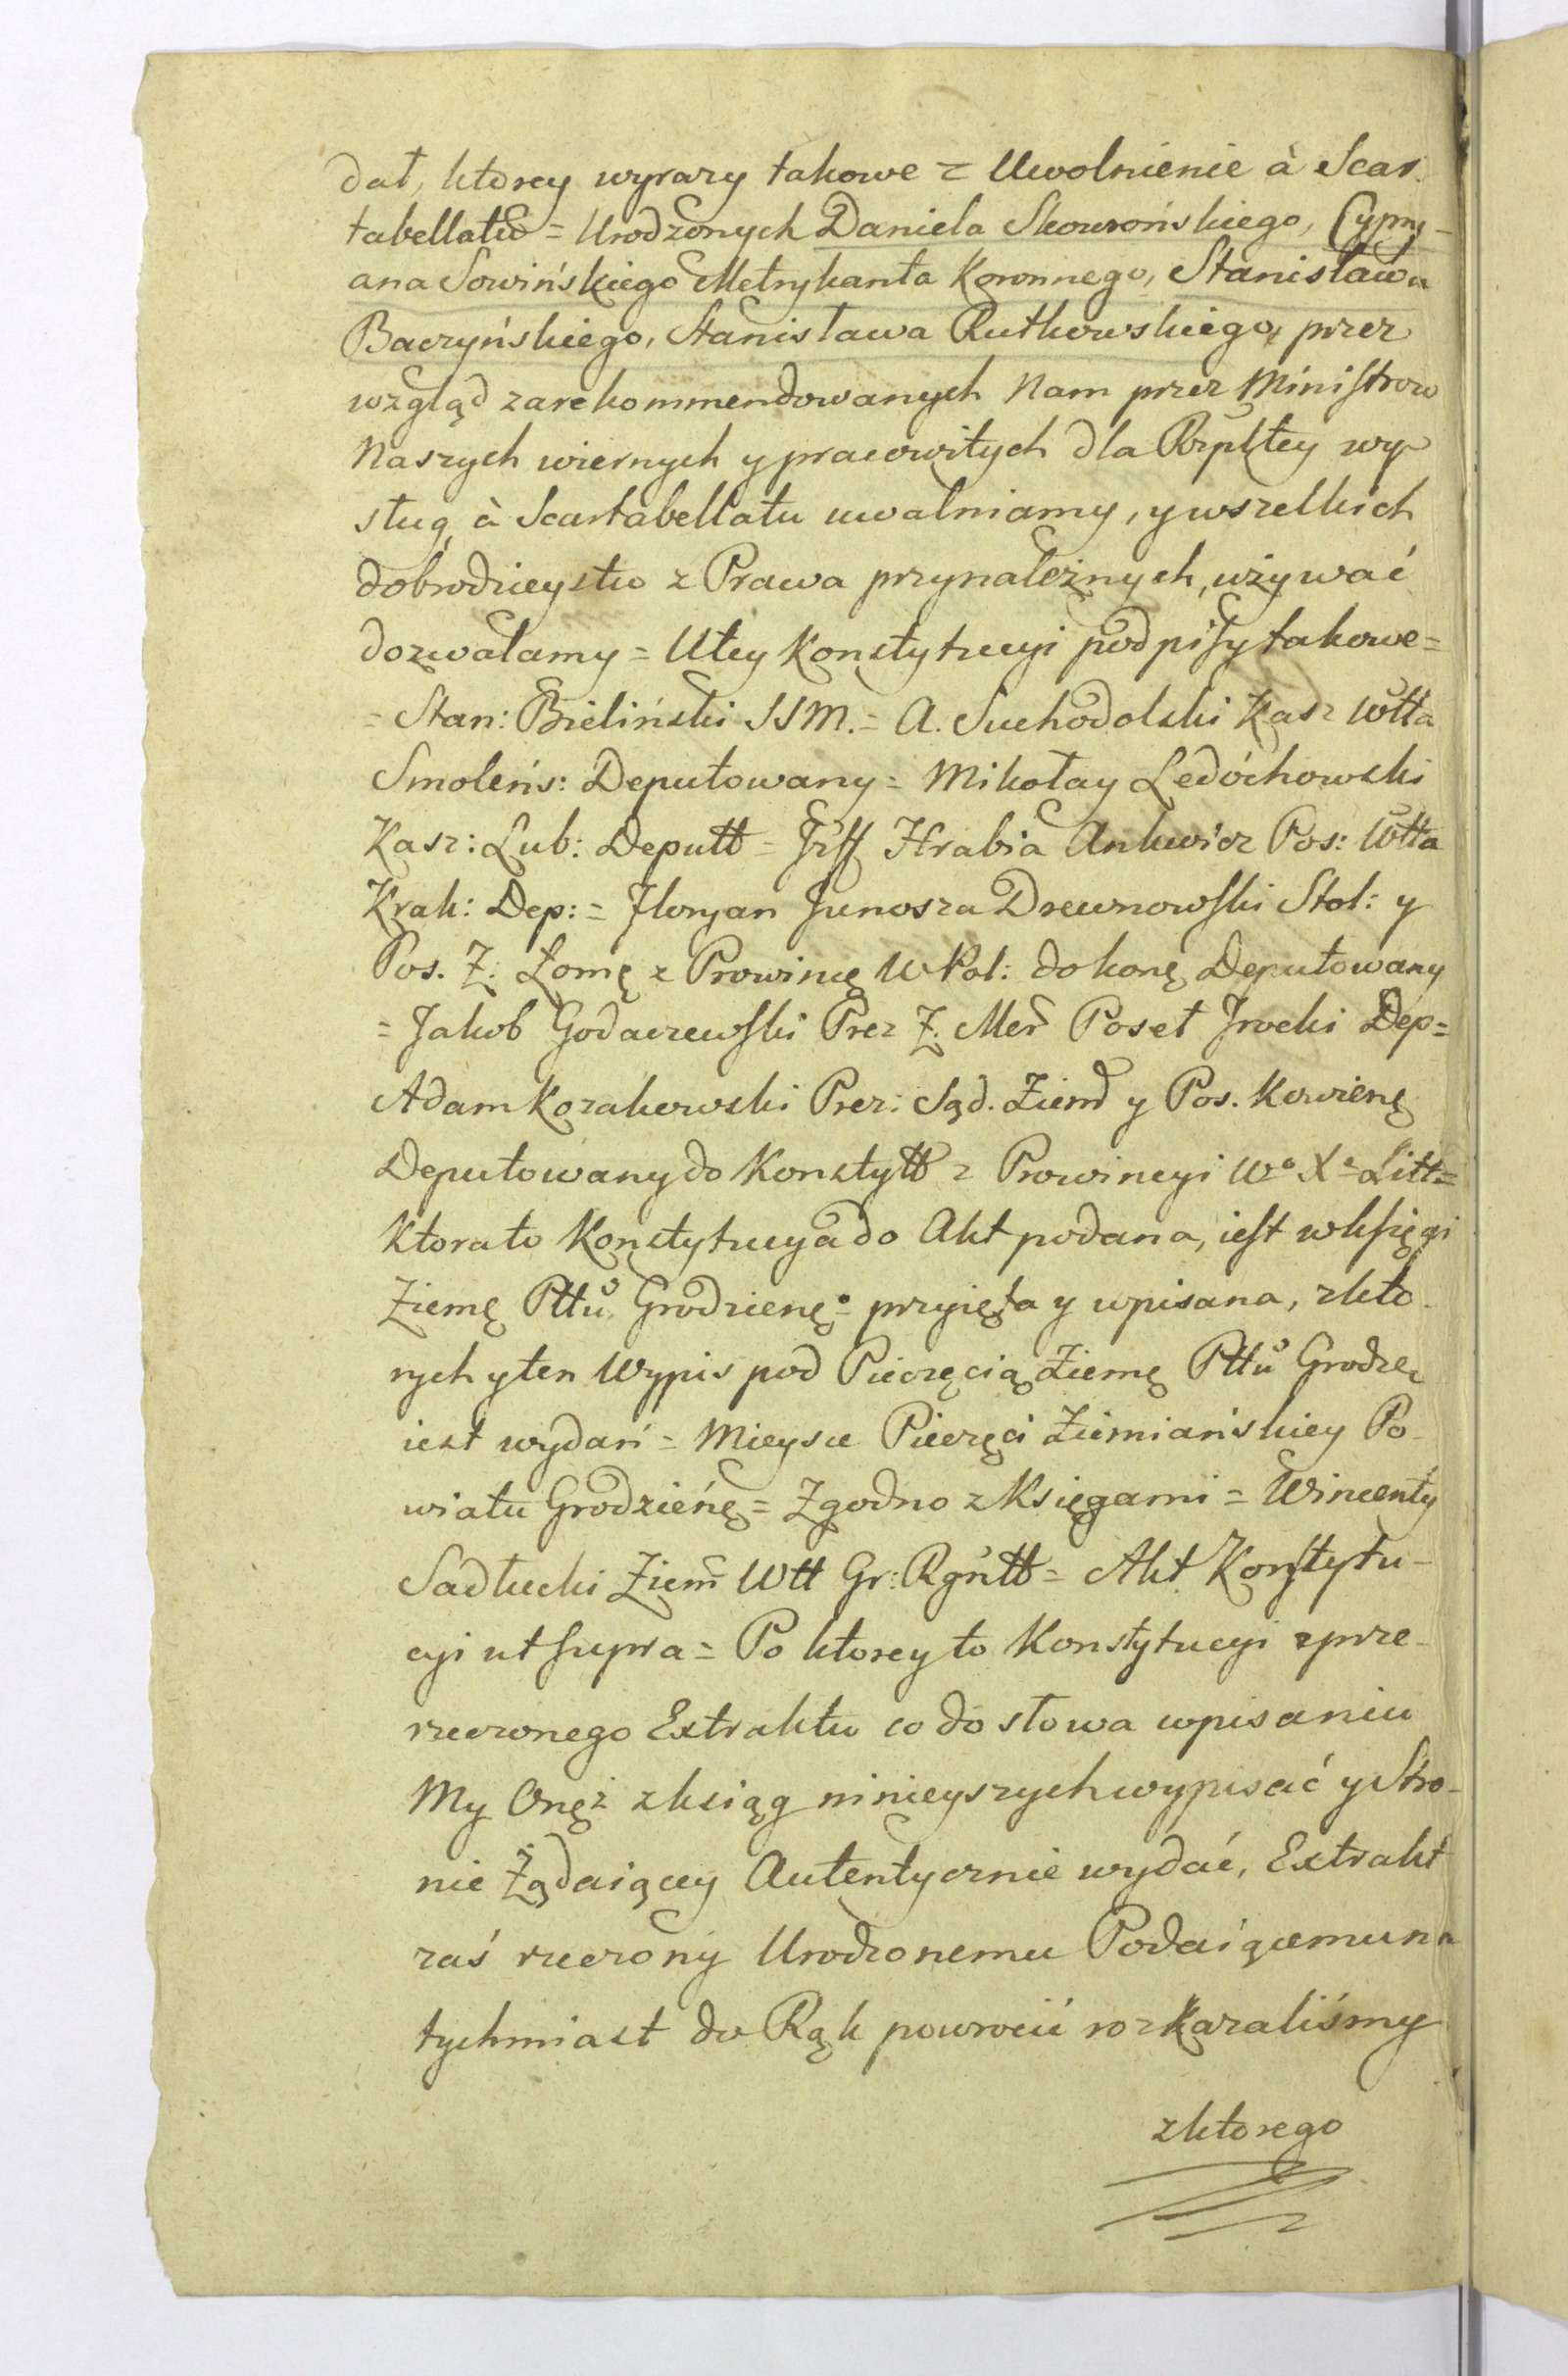 dał, ktorey wyrazy takowe = Uwolnienie à Scar-
tabellatu = Urodzonych Daniela Skowrońskiego, Cypry-
ana Sowińskiego Metrykanta Koronnego, Stanisława
Baczyńskiego, Stanisława Rutkowskiego, przez
wzgląd zarekommendowanych Nam przez Ministrow
Naszych wiernych y pracowitych dla Rzpltey wy-
sług, à Scartabellatu uwalniamy, y wszelkich
dobrodzieystw z Prawa przynależnych, używać
dozwalamy = U tey Konstytucyi podpisy takowe =
= Stan: Bieliński SSM. = A. Suchodolski Kasz Wttа
Smoleńs: Deputowany = Mikołay Ledóchowski
Kasz: Lub: Deputt = Jżff Hrabia Ankwicz Pos: Wtta
Krak: Dep: = Floryan Junosza Drewnowski Stol: y
Pos. Z. Łomę z Prowincę W Pol: do konę Deputowany
= Jakob Godaczewski Prez Z. Mer Poseł Trocki Dep =
Adam Kozakowski Prez: Sąd. Ziem y Pos. Kowienę
Deputowany do Konstytt z Prowincyi Wo Xa Litt =
Ktora to Konstytucya do Akt podana, iest w Księgi
Ziemę Pttu Grodzienę przyięta y wpisana, z kto-
rych y ten Wypis pod Pieczęcią Ziemę Pttu Grodzę
iest wydań = Mieysce Pieczęci Ziemiańskiey Po-
wiatu Grodzieńę = Zgodno z Księgami = Wincenty
Sadłucki Ziem Wtt Gr: Rgntt = Akt Konstytu-
cyi ut supra = Po ktorey to Konstytucyi z prze-
rzeczonego Extraktu co do słowa wpisaniu
My Onęż z ksiąg ninieyszych wypisać y Stro-
nie Żądaiącey Autentycznie wydać, Extrakt
zaś rzeczony Urodzonemu Podaiącemu na
tychmiast do Rąk powrocić rozkazaliśmy
z ktorego